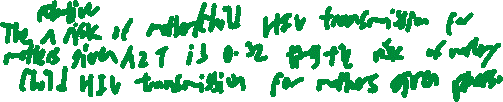 relative
The ^ risk of mother/child HIV transmission for
mothers given AZT is 0.32 the risk of mother
Child HIV transmission for mothers given